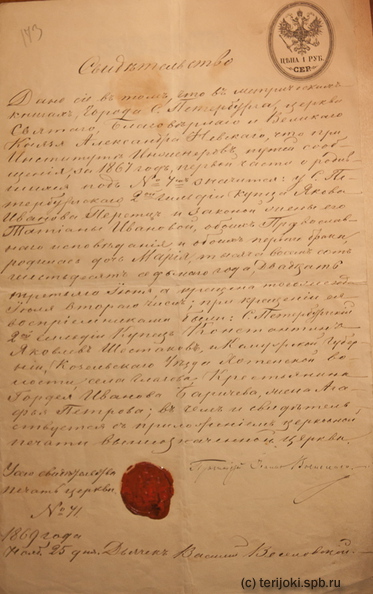 173
ЦѢНА 1 РУБ.
СЕР.
Свидѣтельство
Дано сіе въ томъ, что въ метрическихъ
книгахъ, города С. Петербурга, церкви
Святаго, Благовѣрнаго и Великаго
Князя Александра Невскаго, что при
Институтѣ Инженеровъ путей сооб-
щенія, за 1867 годъ, первой части о родив-
шихся подъ № значится: у С. Пе-
тербургскаго 2й гильдіи купца Якова
Иванова и законной жены его
Татьяны Ивановой, обоихъ Православ-
наго исповѣданія и обоихъ перваго брака
родилась дочь Марія, тысяча восемь сотъ
шестьдесятъ седьмаго года, двадцать
третьяго Іюня, а крещена того же года
Іюля втораго числа; при крещеніи ея
воспріемниками были: С. Петербургскій
2й гильдіи Купецъ Константинъ
Яковлевъ Шестаковъ, и Калужской Губер-
ніи, Козельскаго Уѣзда во-
лости, села Крестьянина
Гордея Иванова жена Ага-
фья Петрова; въ чемъ и свидѣтель-
ствуется съ приложеніемъ церковной
печати вышеозначенной церкви.
У сего свидѣтельства
печать церкви
№ 71
1869 года
25 дня. Дьячекъ Василій
(c) terijoki.spb.ru